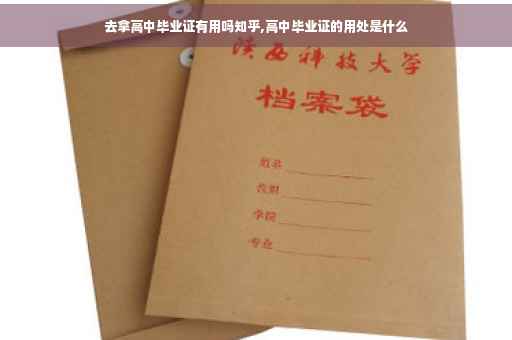 去拿高中毕业证有用吗知乎,高中毕业证的用处是什么
陕西科技大学
档案袋
姓名
学院
专业